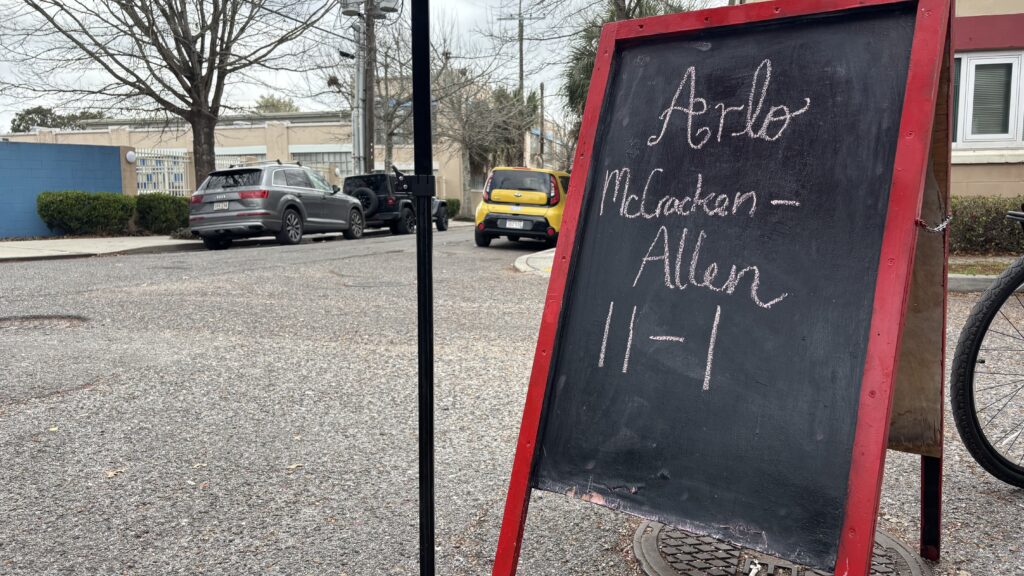 Arlo
McCrackan-
Allen
11-1